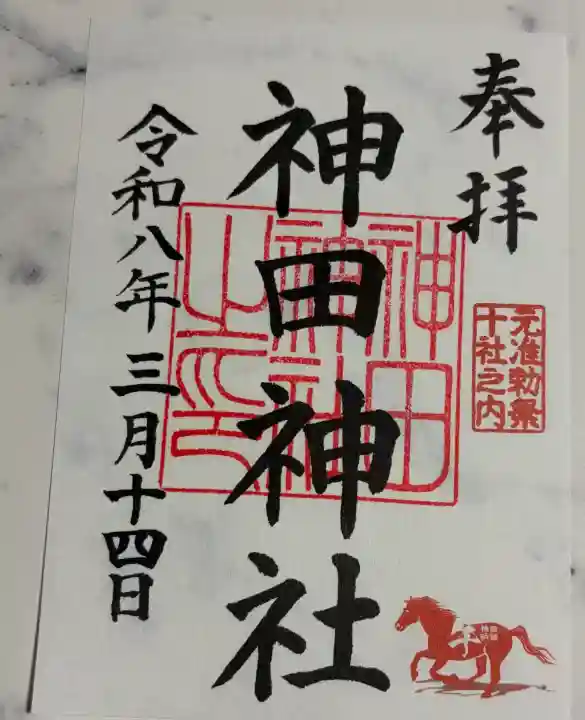 奉拝
元准勅祭
十社之内
神田神社
神田
神社
之印
令和八年三月十四日